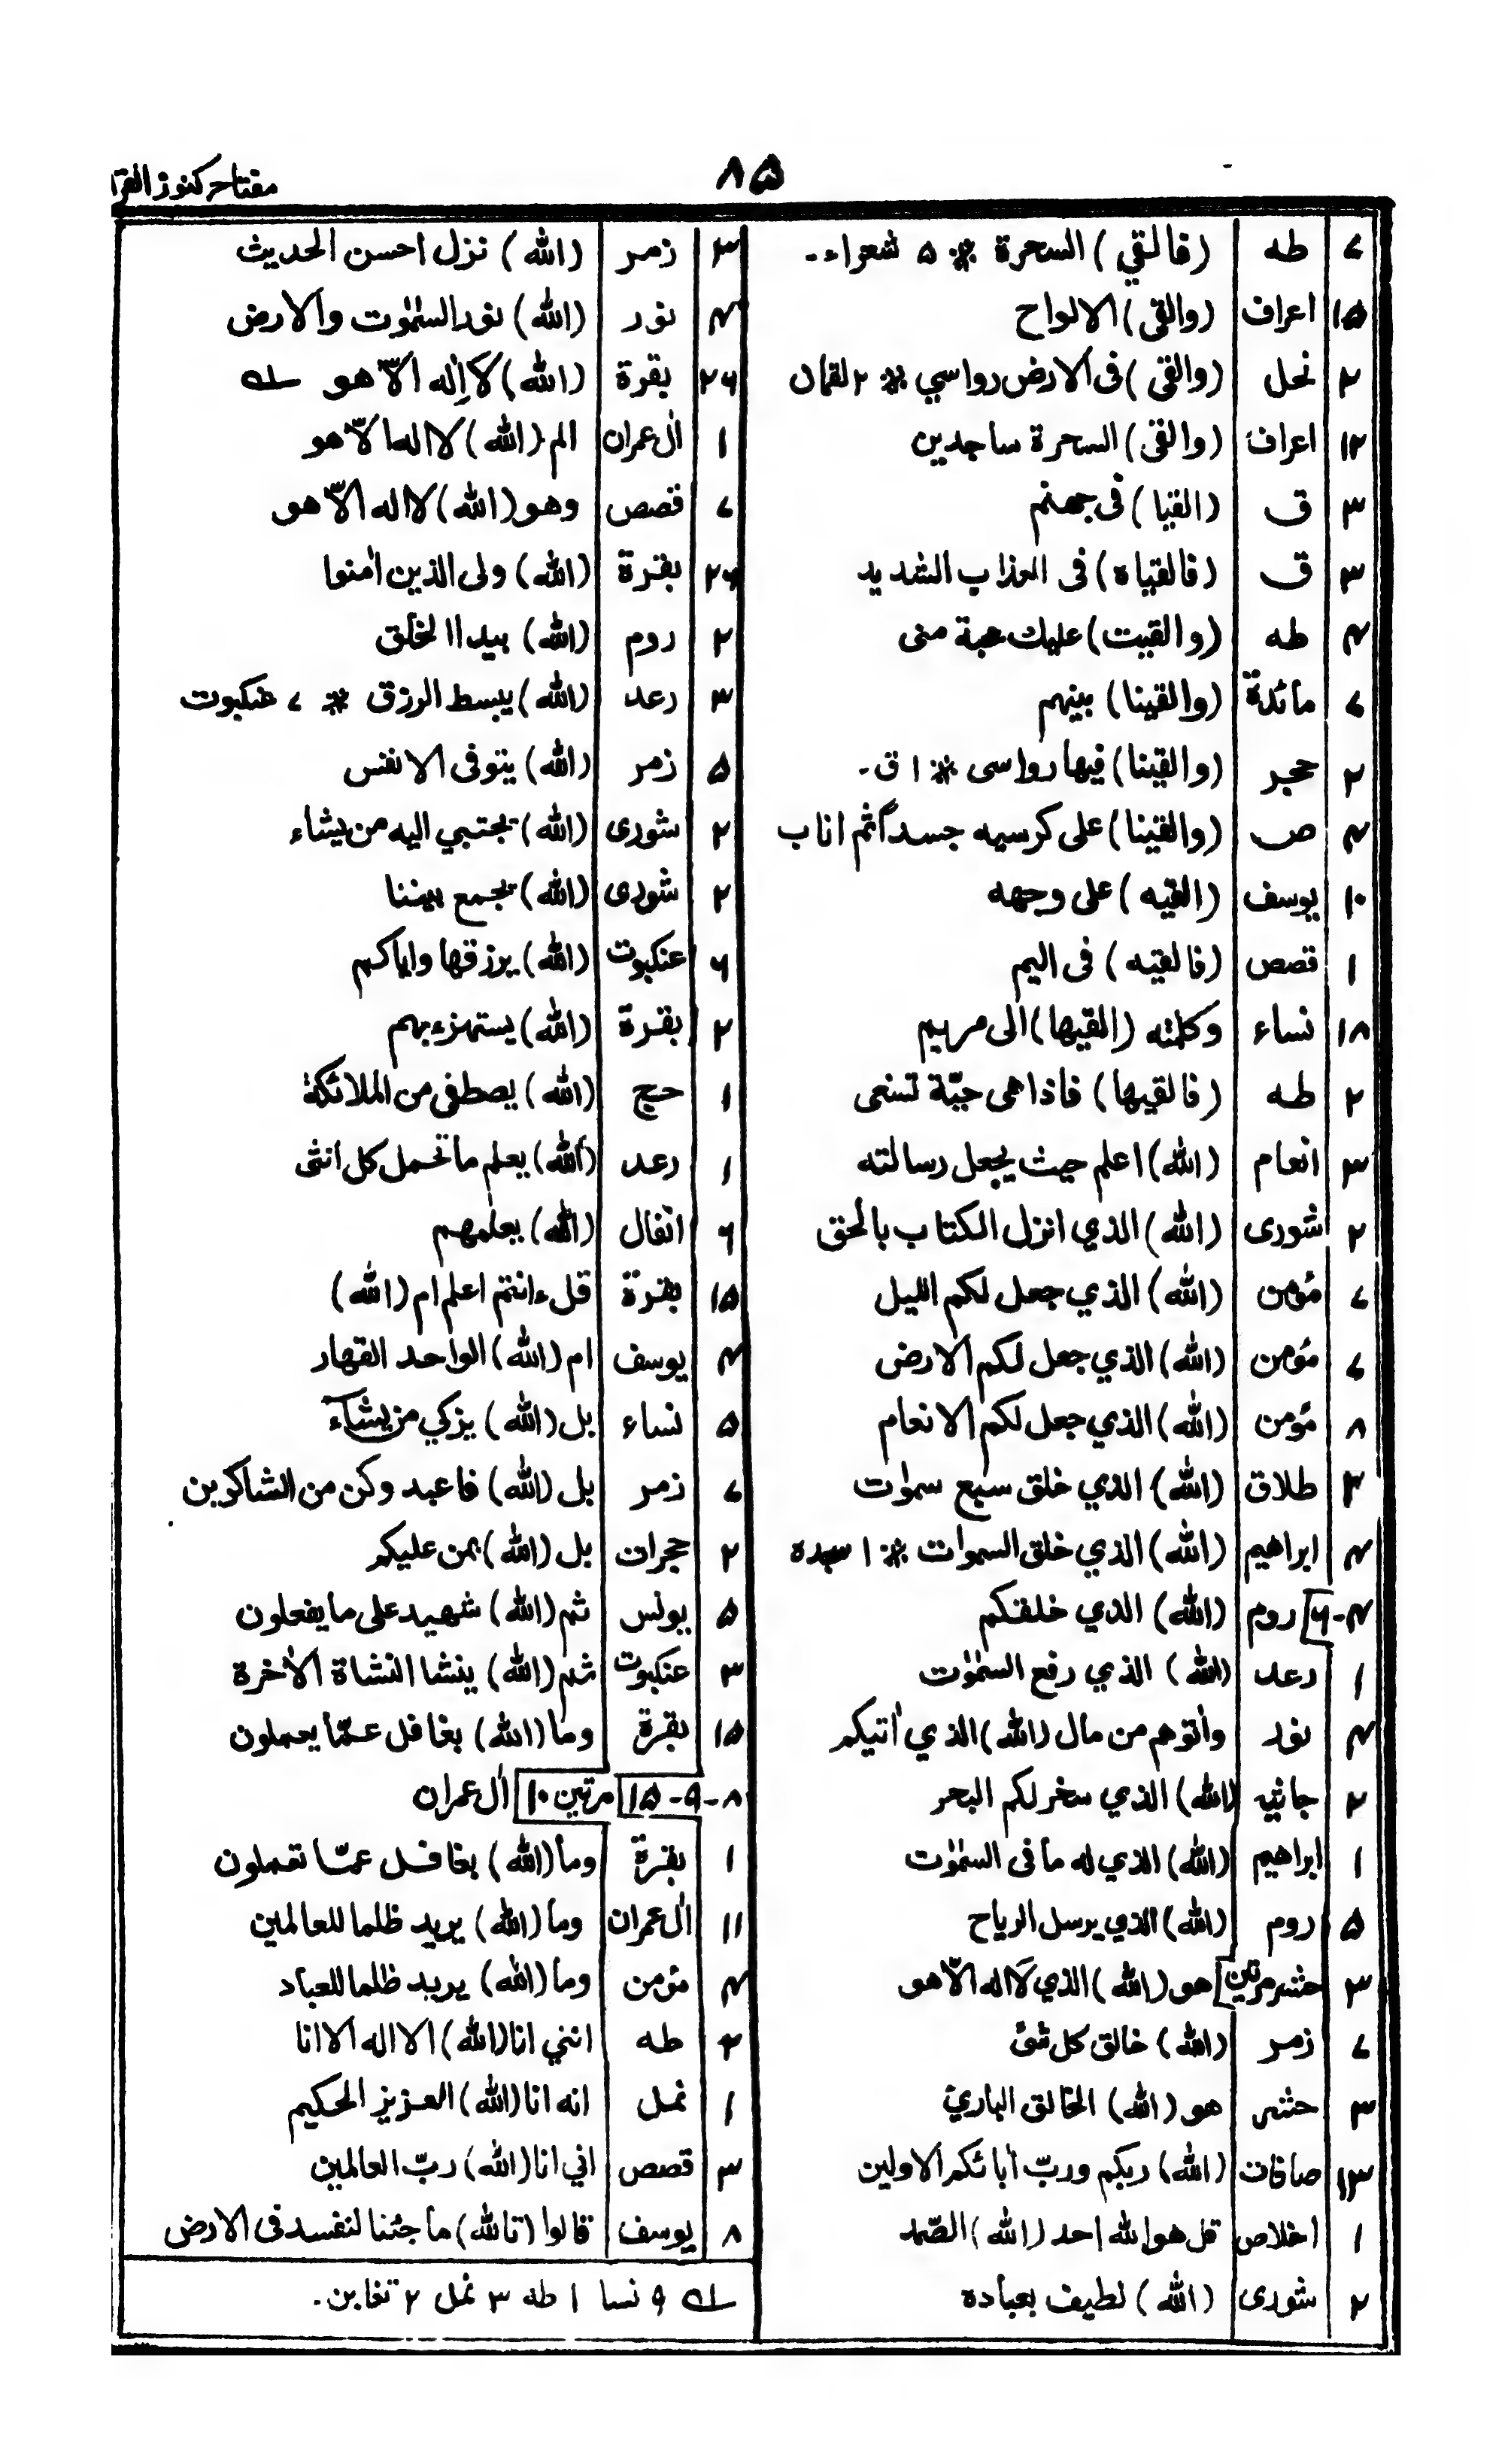 مفتاح كنوز القرا
۸۵
۷ طه (فالقي) السحرة ※ ۵ شعراء۔
۱۵ اعراف (والقى) الالواح
۲ نحل (والقى) فى الارض رواسي ※ ۲ لقمان
۱۲ اعراف (والقى) السحرة ساجدين
۳ ق (القيا) فى جهنم
۳ ق (فالقياه) فى العذاب الشديد
۴ طه (والقيت) عليك محبة منى
۷ مائدة (والقينا) بينهم
۲ حجر (والقينا) فيها رواسى ※ ۱ ق۔
۴ ص (والقينا) على كرسيه جسداً ثم اناب
۱۰ يوسف (القيه) على وجهه
۱ قصص (فالقيه) فى اليم
۱۸ نساء وكلمته (القيها) الى مريم
۲ طه (فالقيها) فاذا هى حيّة تسعى
۳ انعام (الله) اعلم حيث يجعل رسالته
۲ شورى (الله) الذي انزل الكتاب بالحق
۷ مؤمن (الله) الذي جعل لكم الليل
۷ مؤمن (الله) الذي جعل لكم الارض
۸ مؤمن (الله) الذي جعل لكم الانعام
۲ طلاق (الله) الذي خلق سبع سمٰوٰت
۴ ابراهيم (الله) الذي خلق السموات ※ ۱ سجده
۴-۶ روم (الله) الذي خلقكم
۱ رعد (الله) الذي رفع السمٰوٰت
۴ نور وأتوهم من مال (الله) الذي اٰتيكم
۲ جاثيه (الله) الذي سخر لكم البحر
۱ ابراهيم (الله) الذي له ما فى السمٰوٰت
۵ روم (الله) الذي يرسل الرياح
۳ حشر مرتين هو (الله) الذي لا اله الّا هو
۷ زمر (الله) خالق كل شئ
۳ حشر هو (الله) الخالق البارئ
۱۳ صافات (الله) ربكم وربّ اٰبائكم الاولين
۱ اخلاص قل هو الله احد (الله) الصّمد
۲ شورى (الله) لطيف بعباده
۳ زمر (الله) نزل احسن الحديث
۴ نور (الله) نور السمٰوٰت والارض
۲۶ بقرة (الله) لا اِله الّا هو ـلـه
۱ اٰل عمران الم (الله) لا اله الّا هو
۷ قصص وهو (الله) لا اله الّا هو
۲۶ بقرة (الله) ولى الذين اٰمنوا
۲ روم (الله) يبدا الخلق
۳ رعد (الله) يبسط الرزق ※ ۷ عنكبوت
۵ زمر (الله) يتوفى الانفس
۲ شورى (الله) يجتبي اليه من يشاء
۲ شورى (الله) يجمع بيننا
۶ عنكبوت (الله) يرزقها واياكم
۲ بقرة (الله) يستهزء بهم
۱ حج (الله) يصطفى من الملائكة
۱ رعد (الله) يعلم ما تحمل كل انثى
۶ انفال (الله) يعلمهم
۱۵ بقرة قل ءانتم اعلم ام (الله)
۴ يوسف ام (الله) الواحد القهار
۵ نساء بل (الله) يزكي من يشآء
۷ زمر بل (الله) فاعبد وكن من الشاكرين
۲ حجرات بل (الله) يمن عليكم
۵ يونس ثم (الله) شهيد على ما يفعلون
۳ عنكبوت ثم (الله) ينشا النشاة الاٰخرة
۱۵ بقرة وما (الله) بغافل عمّا يعملون
۸-۹-۱۵ مرتين ۱۰ اٰل عمران
۱ بقرة وما (الله) بغافل عمّا تعملون
۱۱ اٰل عمران وما (الله) يريد ظلما للعالمين
۴ مؤمن وما (الله) يريد ظلما للعباد
۲ طه انني انا (الله) الا اله الا انا
۱ نمل انه انا (الله) العزيز الحكيم
۳ قصص اني انا (الله) ربّ العالمين
۸ يوسف قالوا (تالله) ما جئنا لنفسد فى الارض
ـلـه ۹ نسا ۱ طه ۳ نمل ۲ تغابن۔